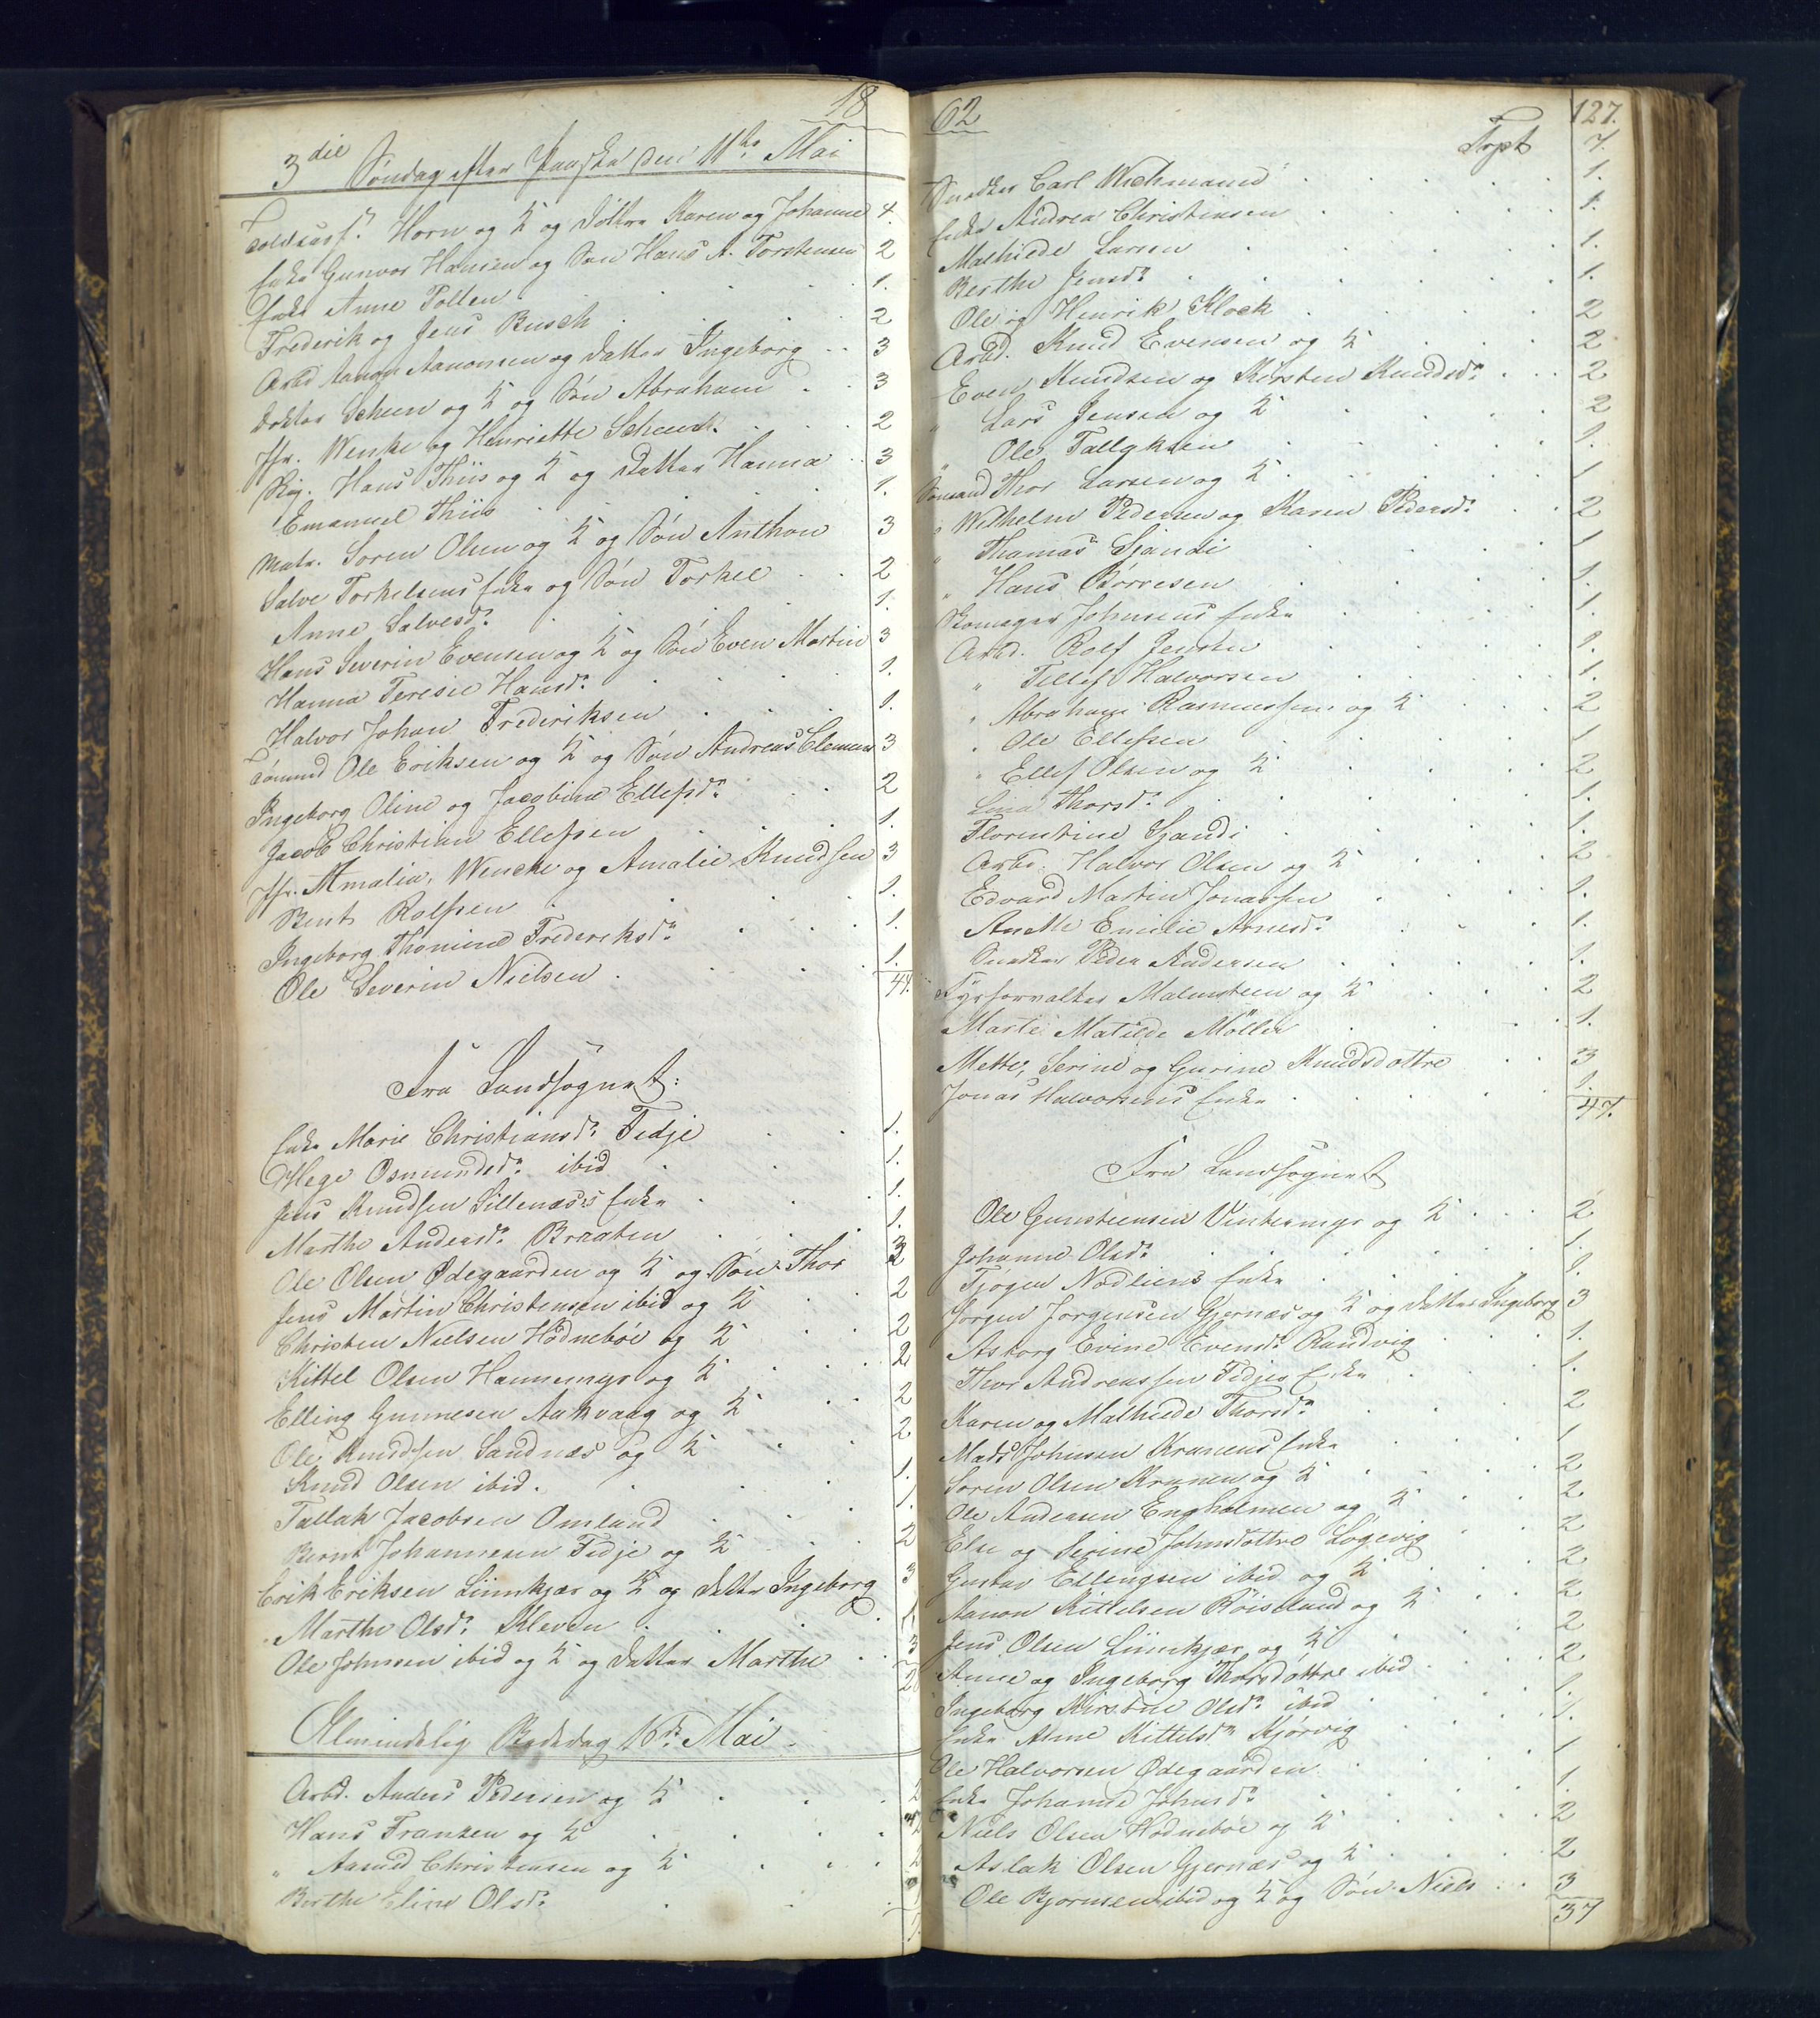 18
3die Søndag efter Paaske den 11te Mai
Toldcass. Horn og K og Døttre Karen og Johanne 4.
Enke Gunvor Hansen og Søn Hans A. Torstensen 2
Enke Anne Tollen 1.
Frederik og Jens Busch 2
Arbd Aanon Aanonsen og Datter Ingeborg 3
Doktor Scheen og K og Søn Abraham 3
Jfr. Wenke og Henriette Scheen 2
Skip. Hans Thiis og K og Datter Hanna 3
Emanuel Thiis 1.
Matr. Soren Olsen og K og Søn Anthon 3
Salve Torkelsens Enke og Søn Torkel 2
Anne Salvesdr. 1.
Hans Severin Evensen og K og Søn Even Martin 3
Hanna Teresie Hansdr. 1.
Halvor Johan Frederiksen 1.
Tømmd Ole Eriksen og K og Søn Andreas Clemens 3
Ingeborg Oline og Jacobine Ellefsdr. 2
Jacob Christian Ellefsen 1.
Jfr. Amalia, Wencke og Amalie Knudsen 3
Bent Rolfsen 1.
Ingeborg Thomine Frederiksdr. 1.
Ole Severin Nielsen 1.
44.
Fra Landsognet:
Enke Marie Christiansdr. Tidje 1.
Hege Osmundsdr. ibid 1.
Jens Knudsen Sillenæs's Enke 1.
Marthe Andersdr. Braaten 1.
Ole Olsen Ødegaarden og K og Søn Thor 3
Jens Martin Christensen ibid og K 2
Christen Nielsen Hødnebøe og K 2
Kittel Olsen Hannemyr og K 2
Elling Gunnesen Aukvaag og K 2
Ole Knudsen Sandnæs og K 2
Knud Olsen ibid. 1.
Tallak Jacobsen Omland 1.
Bernt Johannesen Fidje og K 2
Erik Eriksen Linnkjær og K og Datter Ingeborg 3
Marthe Olsdr. Kleven 1.
Ole Johnsen ibid og K og Datter Marthe 3
Almindelig Bededag 16de Mai.
Arbd. Anders Pedersen og K 2
Hans Franzen og K 2
" Aamud Christensen og K 2
Berthe Eline Olsdr. 1
62
127.
Trpt 7.
Snedker Carl Wichmand 1.
Enke Andrea Christensen 1.
Mathilde Larsen 1.
Berthe Jensdr. 1.
Ole og Henrik Klock 2
Arbd. Knud Evensen og K 2
Even Knudsen og Kirsten Knudsdr. 2
" Lars Jensen og K 2
" Ole Tallaksen 1.
Sømand Thor Larsen og K
" Wilhelm Pedersen og Karen Pedersdr. 2
" Thomas Gjandi 1
" Hans Børresen 1.
Skomager Johnsens Enke 1.
Arbd. Rolf Jensen 1.
" Tellef Halvorsen 1.
" Abraham Rasmussen og K 2
" Ole Ellefsen 1
" Ellef Olsen og K 2
Lina Thorsdr. 1.
Florentine Gjandi 1.
Arbd. Halvor Olsen og K 2
Edvard Martin Jonassen 1.
Anette Emilie Arnesdr. 1.
Snedker Peder Andersen 1.
Fyrforvalter Malmsteen og K 2
Marte Matilde Møller 1.
Mette, Serine og Gurine Knudsdøttre 3
Jonas Halvorsens Enke 1.
47.
Fra Landsognet
Ole Gunsteensen Vintermyr og K 2
Johanne Olsdr. 1.
Tjøgen Nødliens Enke 1.
Jørgen Jørgensen Gjernæs og K og Datter Ingeborg 3
Asborg Evine Evensdr. Randvig 1.
Thor Andreassen Fidjes Enke 1.
Karen og Mathilde Thorsdr. 2
Mads Johnsen Kranens Enke 1
Søren Olsen Kranen og K 2
Ole Andersen Engholmen og K 2
Else og Serine Johnsdøttre Løgevig 2
Gustav Ellingsen ibid og K 2
Aanon Kittelsen Røisland og K 2
Jens Olsen Linnkjær og K 2
Anne og Ingeborg Thorsdøttre ibid 2
Ingeborg Kirstine Olsdr. ibid 1.
Enke Anne Kittelsdr. Kjørvig 1.
Ole Halvorsen Ødegaarden 1
Enke Johanne Johnsdr. 1.
Niels Olsen Hødnebøe og K 2
Aslak Olsen Gjernæs og K 2
Ole Bjornsen ibid og K og Søn Niels 3
37